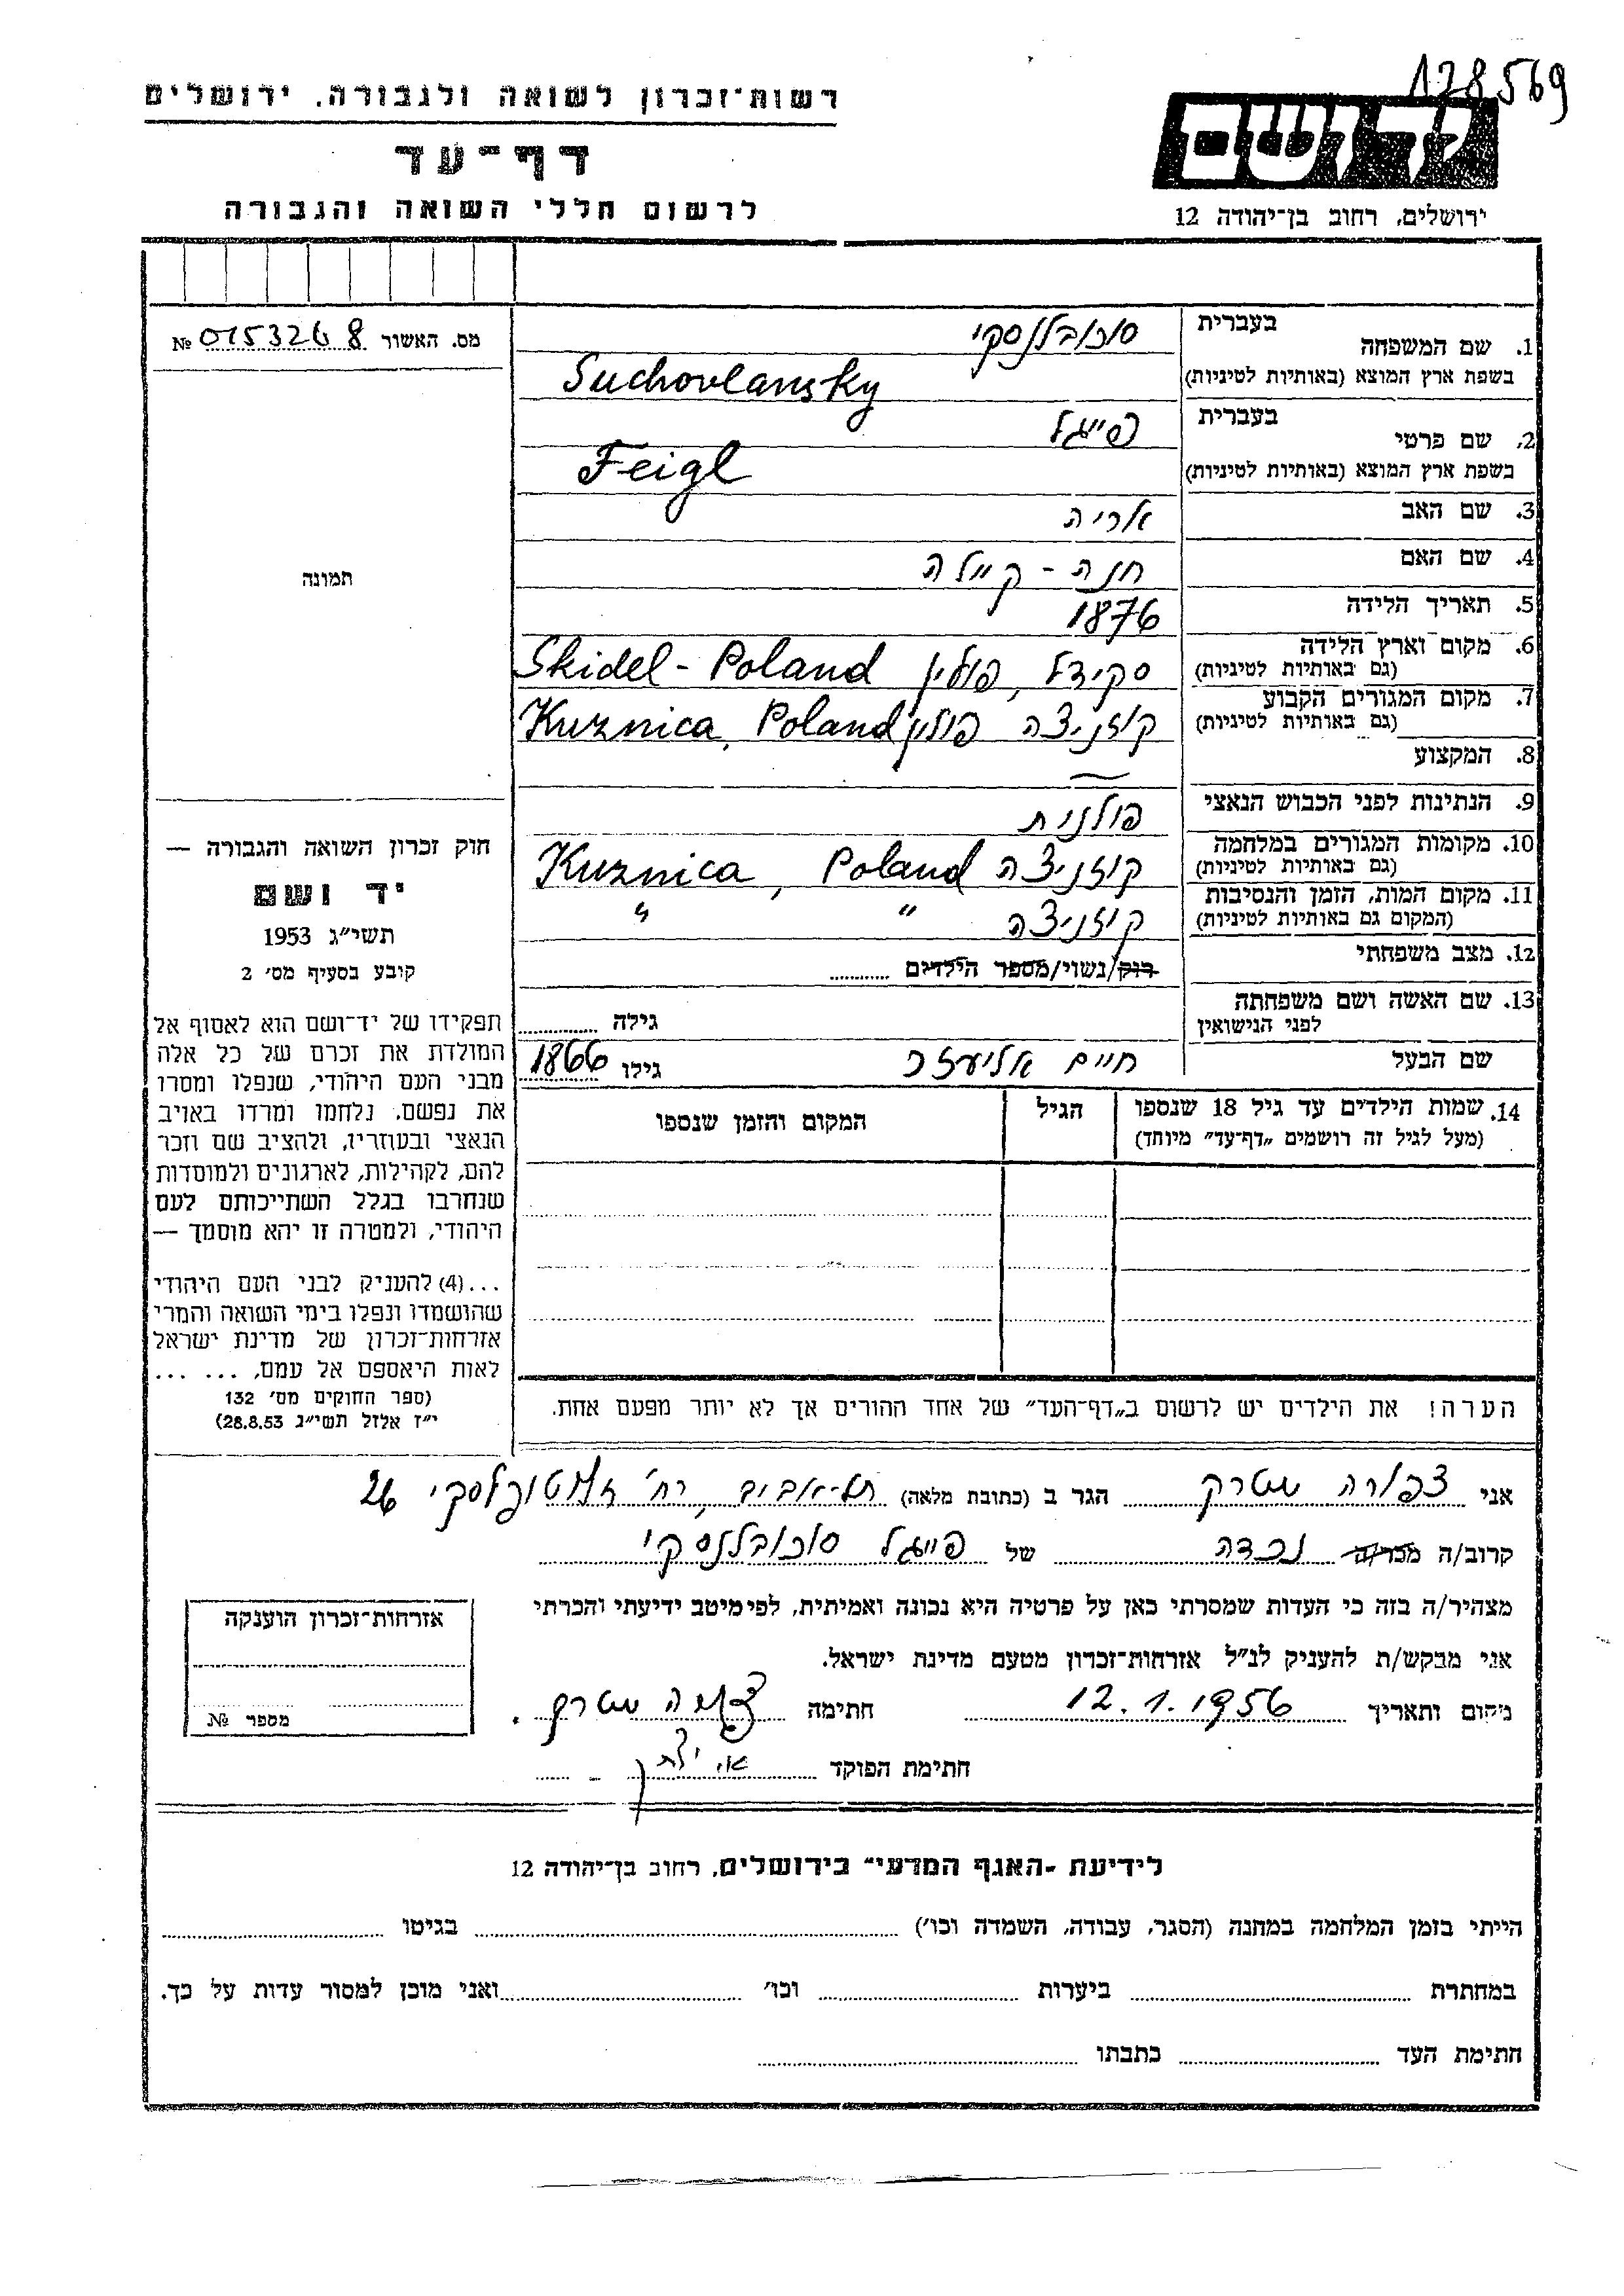 128569
רשות־זכרון לשואה ולגבורה, ירושלים
ידושם
דף־עד
לרשום חללי השואה והגבורה
ירושלים, רחוב בן־יהודה 12
מס. האשור № 0153268
תמונה
1. שם המשפחה
בעברית סוכובלנסקי
בשפת ארץ המוצא (באותיות לטיניות) Suchovlansky
2. שם פרטי
בעברית פייגל
בשפת ארץ המוצא (באותיות לטיניות) Feigl
3. שם האב אריה
4. שם האם חנה - קיילה
5. תאריך הלידה 1876
6. מקום וארץ הלידה
(גם באותיות לטיניות) סקידל, פולין Skidel - Poland
7. מקום המגורים הקבוע
(גם באותיות לטיניות) קוזניצה פולין Kuznica, Poland
8. המקצוע —
9. הנתינות לפני הכבוש הנאצי פולנית
10. מקומות המגורים במלחמה
(גם באותיות לטיניות) קוזניצה Kuznica, Poland
11. מקום המות, הזמן והנסיבות
(המקום גם באותיות לטיניות) קוזניצה " "
12. מצב משפחתי רוק/נשוי/מספר הילדים
13. שם האשה ושם משפחתה
לפני הנישואין גילה
שם הבעל חיים אליעזר גילו 1866
14. שמות הילדים עד גיל 18 שנספו הגיל המקום והזמן שנספו
(מעל לגיל זה רושמים "דף־עד" מיוחד)
הערה! את הילדים יש לרשום ב"דף־העד" של אחד ההורים אך לא יותר מפעם אחת.
חוק זכרון השואה והגבורה —
יד ושם
תשי"ג 1953
קובע בסעיף מס' 2
תפקידו של יד־ושם הוא לאסוף אל
המולדת את זכרם של כל אלה
מבני העם היהודי, שנפלו ומסרו
את נפשם, נלחמו ומרדו באויב
הנאצי ובעוזריו, ולהציב שם וזכר
להם, לקהילות, לארגונים ולמוסדות
שנחרבו בגלל השתייכותם לעם
היהודי, ולמטרה זו יהא מוסמך —
...(4) להעניק לבני העם היהודי
שהושמדו ונפלו בימי השואה והמרי
אזרחות־זכרון של מדינת ישראל
לאות היאספם אל עמם, ... ...
(ספר החוקים מס' 132
י"ז אלול תשי"ג 28.8.53)
אני צפורה שטרק הגר ב (כתובת מלאה) תל-אביב, רח' 26
קרוב/ה מכר/ה נכדה של פייגל סוכובלנסקי
מצהיר/ה בזה כי העדות שמסרתי כאן על פרטיה היא נכונה ואמיתית, לפי מיטב ידיעתי והכרתי
אני מבקש/ת להעניק לנ"ל אזרחות־זכרון מטעם מדינת ישראל.
מקום ותאריך 12.1.1956 חתימה צפורה שטרק.
חתימת הפוקד
אזרחות־זכרון הוענקה
מספר №
לידיעת "האגף המדעי" בירושלים, רחוב בן־יהודה 12
הייתי בזמן המלחמה במחנה (הסגר, עבודה, השמדה וכו') בגיטו
במחתרת ביערות וכו' ואני מוכן למסור עדות על כך.
חתימת העד כתבתו